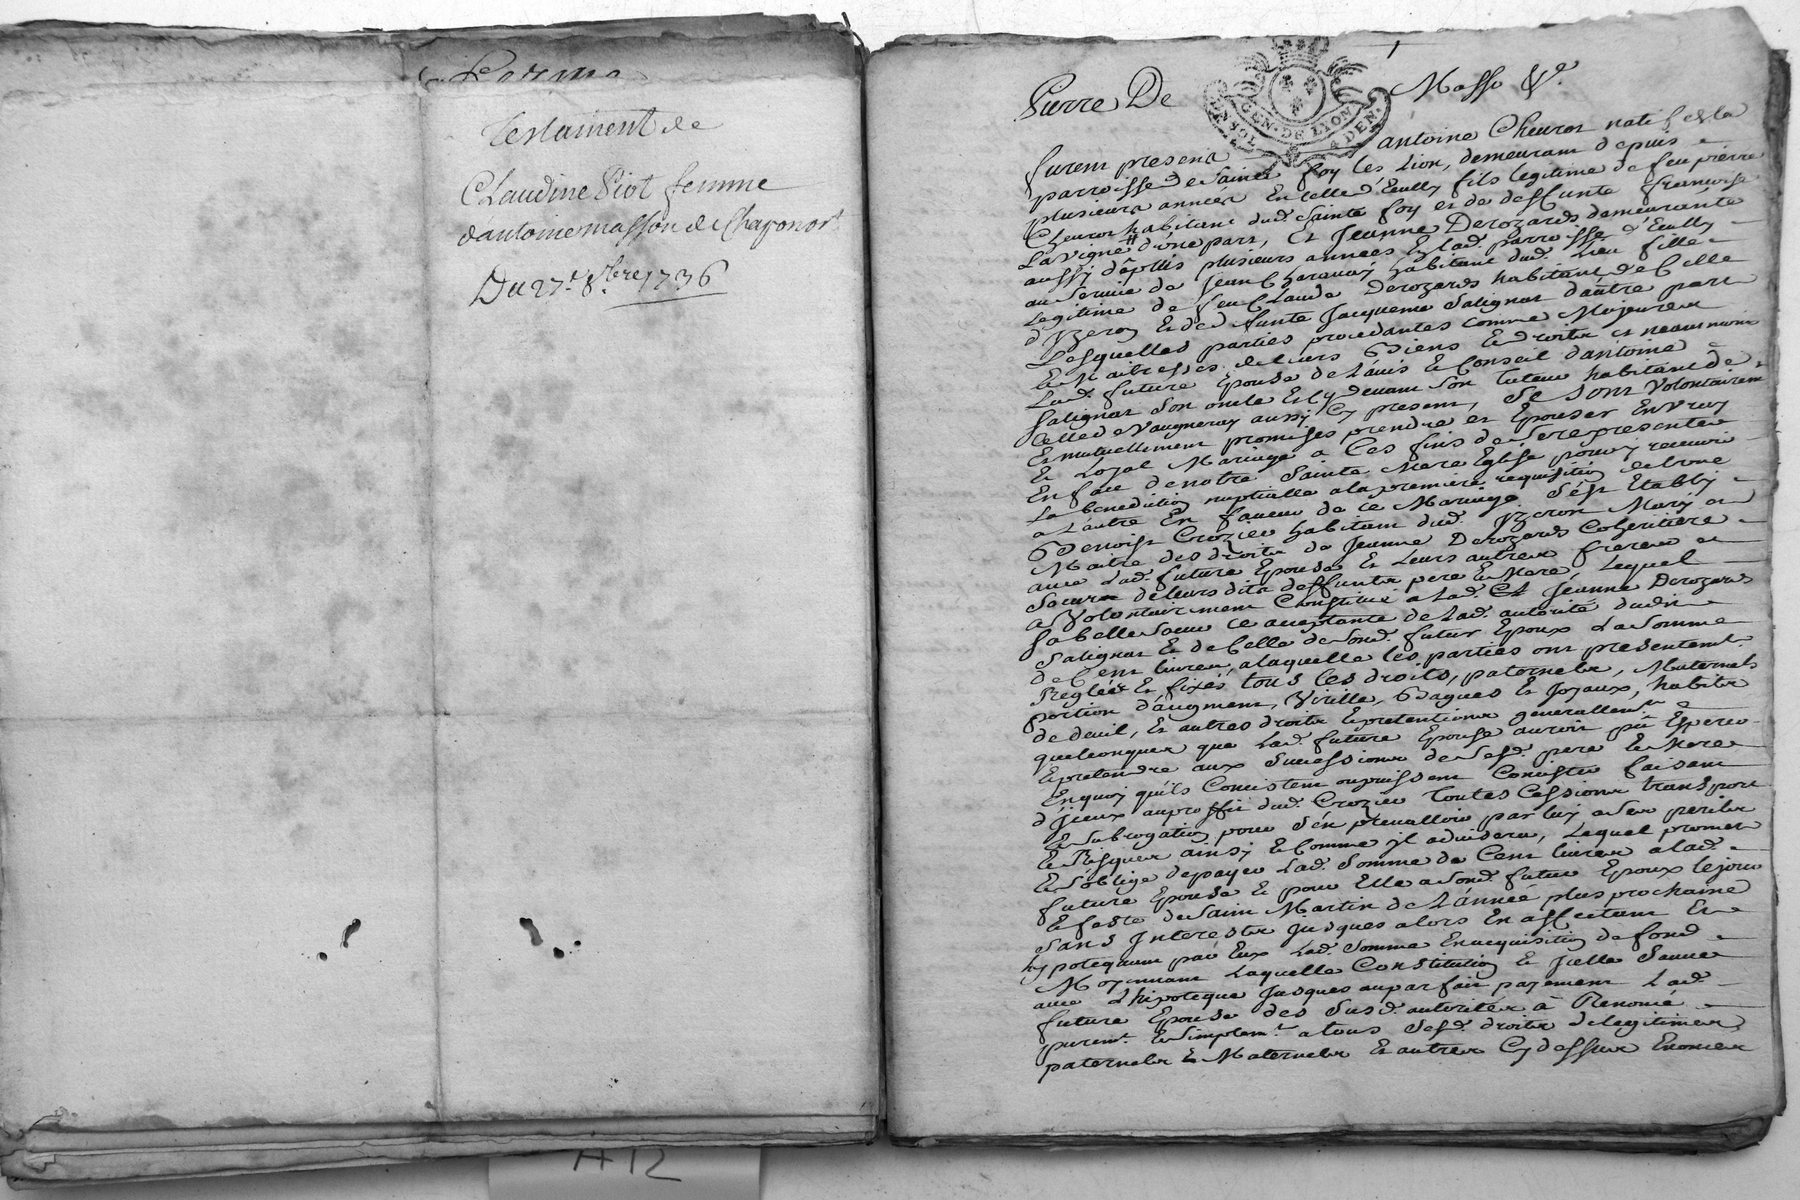 Testament de
Claudine Piot femme
d'antoine masson de Chaponost
Du 27e. 8bre 1736
Pierre De Masso &c.
GEN. DE LYON
furent presents antoine Cheuron natif de la
parroisse de Sainte foy les Lion, demeurant depuis
plusieurs années En celle d'Eculy fils legitime de feu pierre
Cheuron habitant dud. Sainte foy et de deffunte francoise
Lavigne d'une part, Et Jeanne Derozards demeurante
aussy depuis plusieurs années En lad. parroisse d'Eculy
au Service de Jean habitant dud. Lieu fille
Legitime de feu Claude Derozards habitant de Celle
d'yzeron Et de deffunte Jacqueme Salignat d'autre part
Lesquelles parties procedantes comme Majeures
Et Maitresses de leurs Biens Et droits et neanmoins
Lad. future Epouse de L'avis Et Conseil d'antoine
Salignat Son oncle Et Cy devant Son tuteur habitant de
Celle de Vaugneray aussy Cy present, Se Sont Volontairement
Et mutuellement promises prendre et Epouser En vray
Et Loyal Mariage a Ces fins de Se representer
En face de notre Sainte Mere Eglise pour y recevoir
La benediction nuptialle a la premiere requisition de l'une
a L'autre En faveur de ce Mariage S'est Etably
Benoist Crozier habitant dud. yzeron Mary et
Maitre des droits de Jeanne Derozards Coheritiere
avec Lad. future Epouse Et Leurs autres freres et
Soeurs de leurs dits deffunts pere Et Mere, Lequel
a Volontairement Constitué a Lad. Jeanne Derozards
Sa belle Soeur ce acceptante de Lad. autorité dudit
Salignat Et de Celle de Sond. futur Epoux La Somme
de Cent livres, a laquelle les parties ont presentement
Reglés Et fixés tous les droits, paternels, Maternels
portion d'augment, Virille, Bagues Et Joyaux, habits
de deuil, Et autres droits Et pretentions generallement
quelconques que Lad. future Epouse auroit pû Esperer
Et pretendre aux Successions de Sesd. pere Et Mere
En quoy qu'ils Consistent ou puissent Consister faisant
d'Jceux au proffit dud. Crozier toutes Cessions transport
Et Subrogation pour S'en prevalloir par luy a Ses perils
Et Risques ainsy Et Comme il advisera, Lequel promet
Et S'oblige de payer Lad. Somme de Cent livres a lad.
future Epouse Et pour Elle a Sond. futur Epoux le jour
Et feste de Saint Martin de L'année plus prochaine
Sans Jnterests Jusques alors En affectant Et
hypotequant par Eux Lad. Somme En acquisition de fond
Moyennant Laquelle Constitution Et Jcelle Sauve
avec L'hipoteque Jusques au parfait payement Lad.
future Epouse des Susd. autorités à Renoncé
purement Et Simplement a tous Sesd. droits de legitimes
paternels Et Maternels Et autres Cy dessus Enoncés
A12